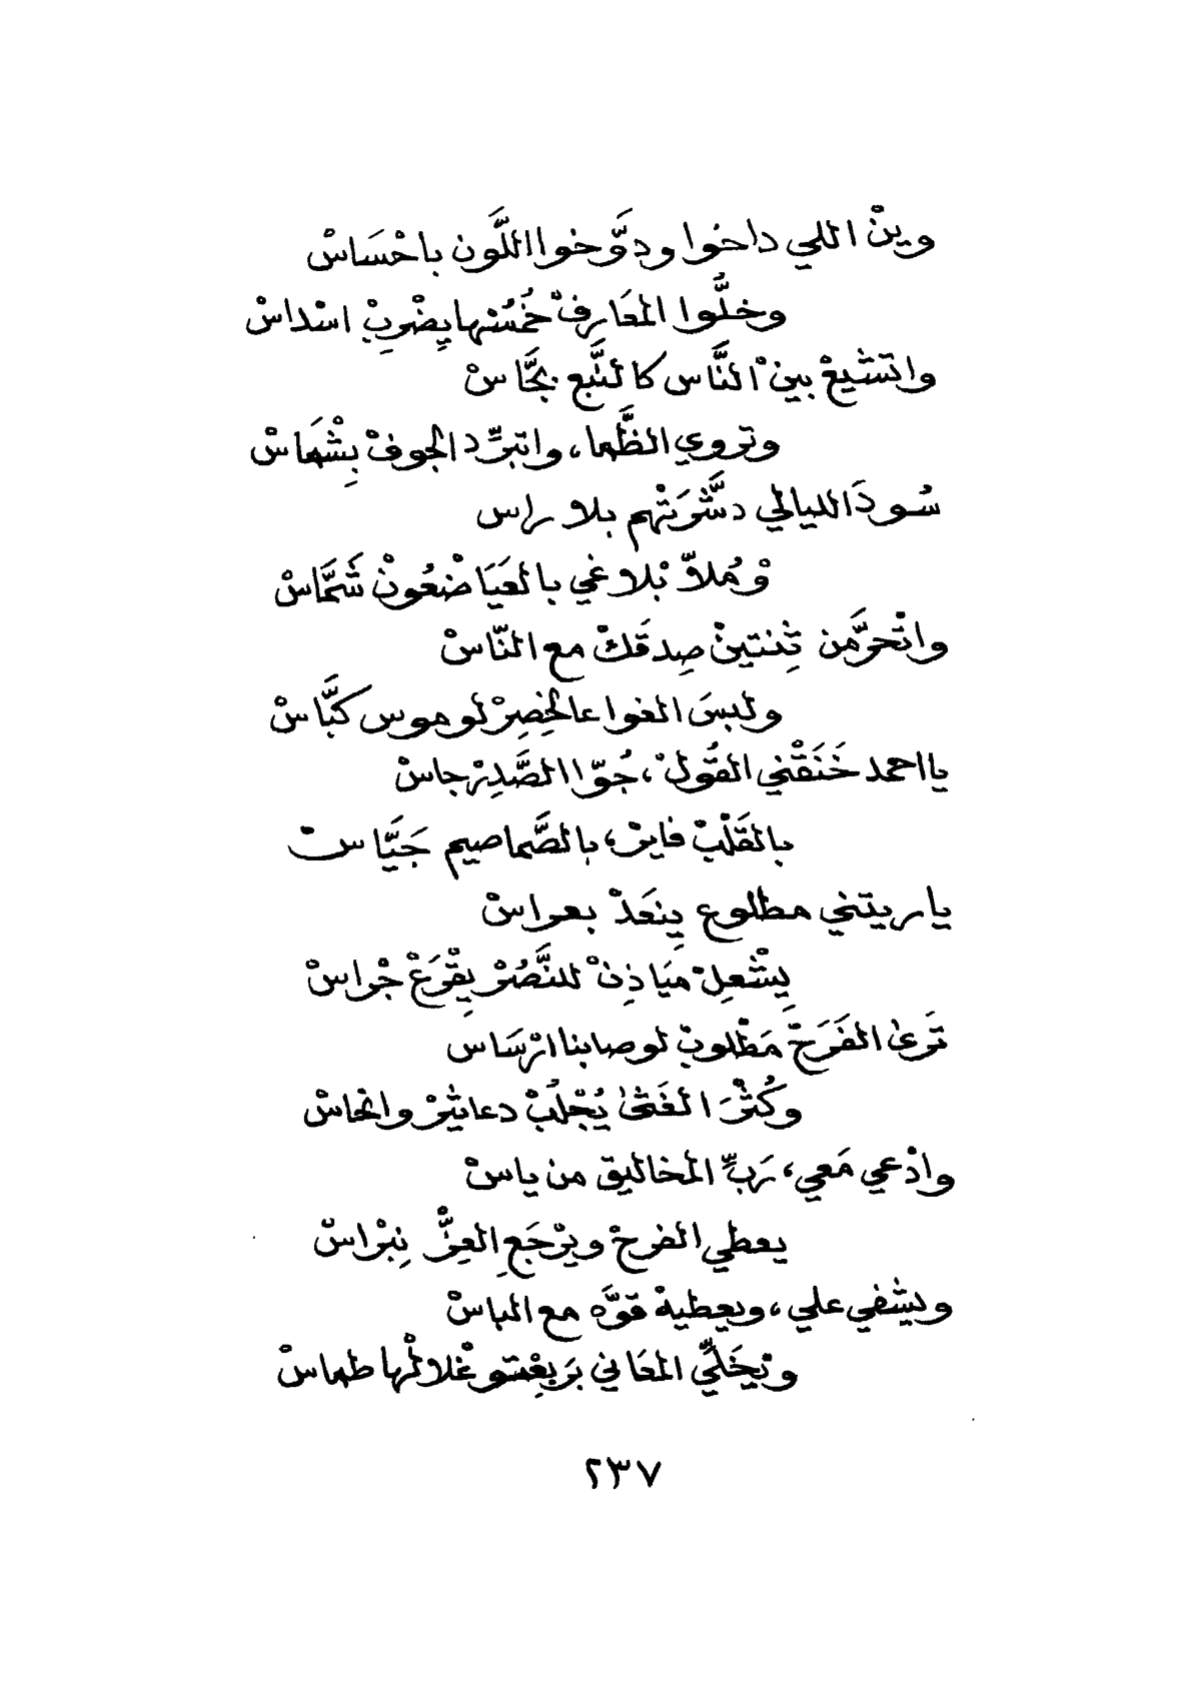 وينْ اللي داخوا ودوَّخوا اللَّون باحْسَاسْ
وخلُّوا المعَارفْ خُمُسْها يِضْرِبْ اسْداسْ
واتشيعْ بينْ النَّاس كالنَّبع بجَّاسْ
وتروي الظَّما، واتبرِّد الجوفْ بِشْمَاسْ
سُودَ الليالي دشَّرَتْهم بلا راس
وْهُملاّ بْلا غي بالعَيَا ضْعُونْ شَمَّاسْ
واتْحرَّمن ثِنتينْ صِدقَكْ مع النّاسْ
ولبسَ الغوا عالخِصِرْ لو موس كبَّاسْ
يا احمد خَنَقْني القُولْ، جُوّا الصَّدِرْ جاسْ
بالقَلْبْ فايرْ، بالصَّماصيم جَيَّاسْ
يا ريتني مطلوع يِنعَدْ بعراسْ
يِشْعِلْ ميَاذِنْ للنَّصُرْ يِقْرَعْ جْراسْ
تَرىٰ الفَرَحْ مَطْلوبْ لو صابنا ارْسَاس
وكُثْرَ الغَثىٰ يُجْلُبْ دعاثيرْ وانحاسْ
وادْعي مَعي، رَبِّ المخاليق من ياسْ
يعطي الفرحْ ويرْجَعِ العِزّْ نِبْراسْ
ويشفي علي، ويعطيهْ قوَّه مع الباسْ
وتْخَلِّي المعَاني بَربِعْتو غْلالْها طماسْ
٢٣٧